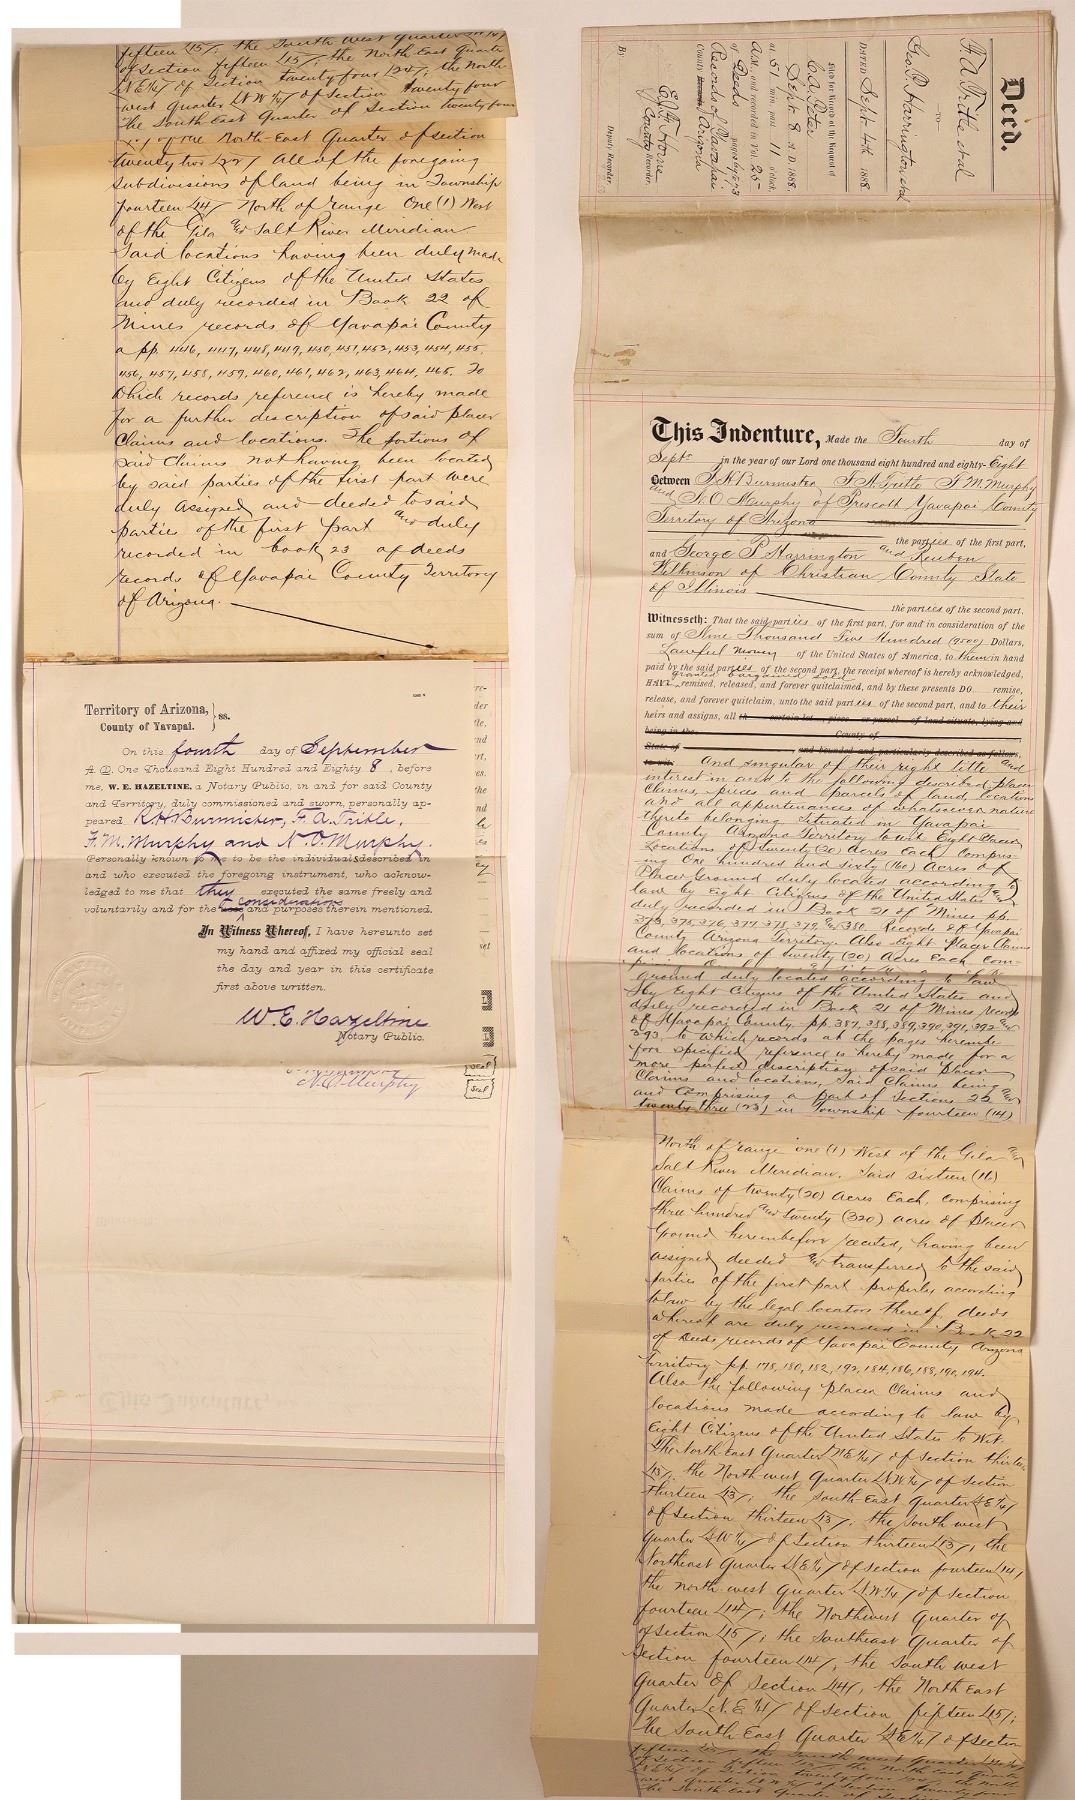 Deed.
F. A. Tritle et al
-to-
Geo. P. Harrington et al
DATED Sept. 4th 1888
Filed for Record at the Request of
Sept. 8 A. D. 1888.
at 51 min. past 11 o'clock
A.M., and recorded in Vol. 25
of Deeds
Records of Yavapai
County Arizona
County Recorder.
By
Deputy Recorder.
This Indenture, Made the Fourth day of
Sept. in the year of our Lord one thousand eight hundred and eighty-Eight
Between R. H. Burmister F. A. Tritle F. M. Murphy
and N. O. Murphy of Prescott Yavapai County
Territory of Arizona
the parties of the first part,
and George P Harrington and Reuben
Wilkinson of Christian County State
of Illinois
the parties of the second part,
Witnesseth: That the said parties of the first part, for and in consideration of the
sum of Nine Thousand Five Hundred (9500) Dollars,
Lawful money of the United States of America, to them in hand
paid by the said parties of the second part, the receipt whereof is hereby acknowledged,
granted bargained sold
HAVE remised, released, and forever quitclaimed, and by these presents DO remise,
release, and forever quitclaim, unto the said parties of the second part, and to their
heirs and assigns, all th certain lot, piece or parcel of land situate, lying and
being in the County of
State of and bounded and particularly described as follows,
to-wit: and singular of their right title and
interest in and to the following described placer
Claims, pieces and parcels of land, locations
and all appurtenances of whatsoever nature
thereto belonging situated in Yavapai
County Arizona Territory to wit Eight Placer
Locations of twenty (20) Acres Each Compris-
ing One hundred and sixty (160) Acres of
Placer Ground duly located according to
law by Eight Citizens of the United States and
duly recorded in Book 21 of Mines pp.
373, 375, 376, 377, 378, 379, & 380 Records of Yavapai
County Arizona Territory. Also Eight Placer Claims
and locations of twenty (20) Acres Each Com-
ground duly located according to law
by Eight Citizens of the United States and
duly recorded in Book 21 of Mines records
of Yavapai County pp. 387, 388, 389, 390, 391, 392 and
393, to which records at the pages herein be-
fore specified reference is hereby made for a
more perfect description of said placer
Claims and locations, Said Claims being
and Comprising a part of Sections 22 and
twenty three (23) in Township fourteen (14)
North of range one (1) West of the Gila and
Salt River Meridian. Said sixteen (16)
Claims of twenty (20) Acres Each, Comprising
three hundred and twenty (320) acres of Placer
Ground hereinbefore recited, having been
assigned deeded and transferred to the said
parties of the first part properly according
to law by the legal locators thereof, deeds
whereof are duly recorded in Book 22
of Deeds records of Yavapai County Arizona
Territory pp. 178, 180, 182, 192, 184, 186, 188, 190, 194.
Also the following placer Claims and
locations made according to law by
Eight Citizens of the United States to Wit.
The North East Quarter (N.E.¼) of section thirteen
(13); the North west Quarter (N.W.¼) of section
thirteen (13); the South-East quarter (S.E.¼)
of section thirteen (13); the South west
quarter (S.W.¼) of section thirteen (13); the
Northeast Quarter (N.E.¼) of section fourteen (14)
the north west Quarter (N.W.¼) of section
fourteen (14); the Northwest Quarter of
of section (15); the Southeast Quarter of
Section fourteen (14); the South west
Quarter of section (14); the North East
Quarter (N.E.¼) of section fifteen (15);
the South East Quarter (S.E.¼) of section
fifteen (15); the South west Quarter
of Section fifteen (15); the North East Quarter
(N.E.¼) of Section twenty four (24); the North
west Quarter (N.W.¼) of Section twenty four
the South East Quarter of Section twenty four
of the North-East Quarter of section
twenty two (22) All of the foregoing
subdivisions of land being in Township
fourteen (14) North of range One (1) West
of the Gila and Salt River Meridian.
Said locations having been duly made
by Eight Citizens of the United States
and duly recorded in Book 22 of
Mines records of Yavapai County
a pp. 446, 447, 448, 449, 450, 451, 452, 453, 454, 455,
456, 457, 458, 459, 460, 461, 462, 463, 464, 465. To
Which records reference is hereby made
for a further description of said placer
Claims and locations. The portions of
said Claims not having been located
by said parties of the first part were
duly assigned and deeded to said
parties of the first part and duly
recorded in book 23 of deeds
records of Yavapai County Territory
of Arizona.
Territory of Arizona,
County of Yavapai. } ss.
On this fourth day of September
A. D. One Thousand Eight Hundred and Eighty 8, before
me, W. E. HAZELTINE, a Notary Public, in and for said County
and Territory, duly commissioned and sworn, personally ap-
peared R H Burmister, F. A. Tritle,
F. M. Murphy and N. O. Murphy.
Personally known to me to be the individuals described in
and who executed the foregoing instrument, who acknow-
ledged to me that they executed the same freely and
voluntarily and for the considerations and purposes therein mentioned.
In Witness Whereof, I have hereunto set
my hand and affixed my official seal
the day and year in this certificate
first above written.
W. E. Hazeltine
Notary Public.
N. O. Murphy
Seal
Seal